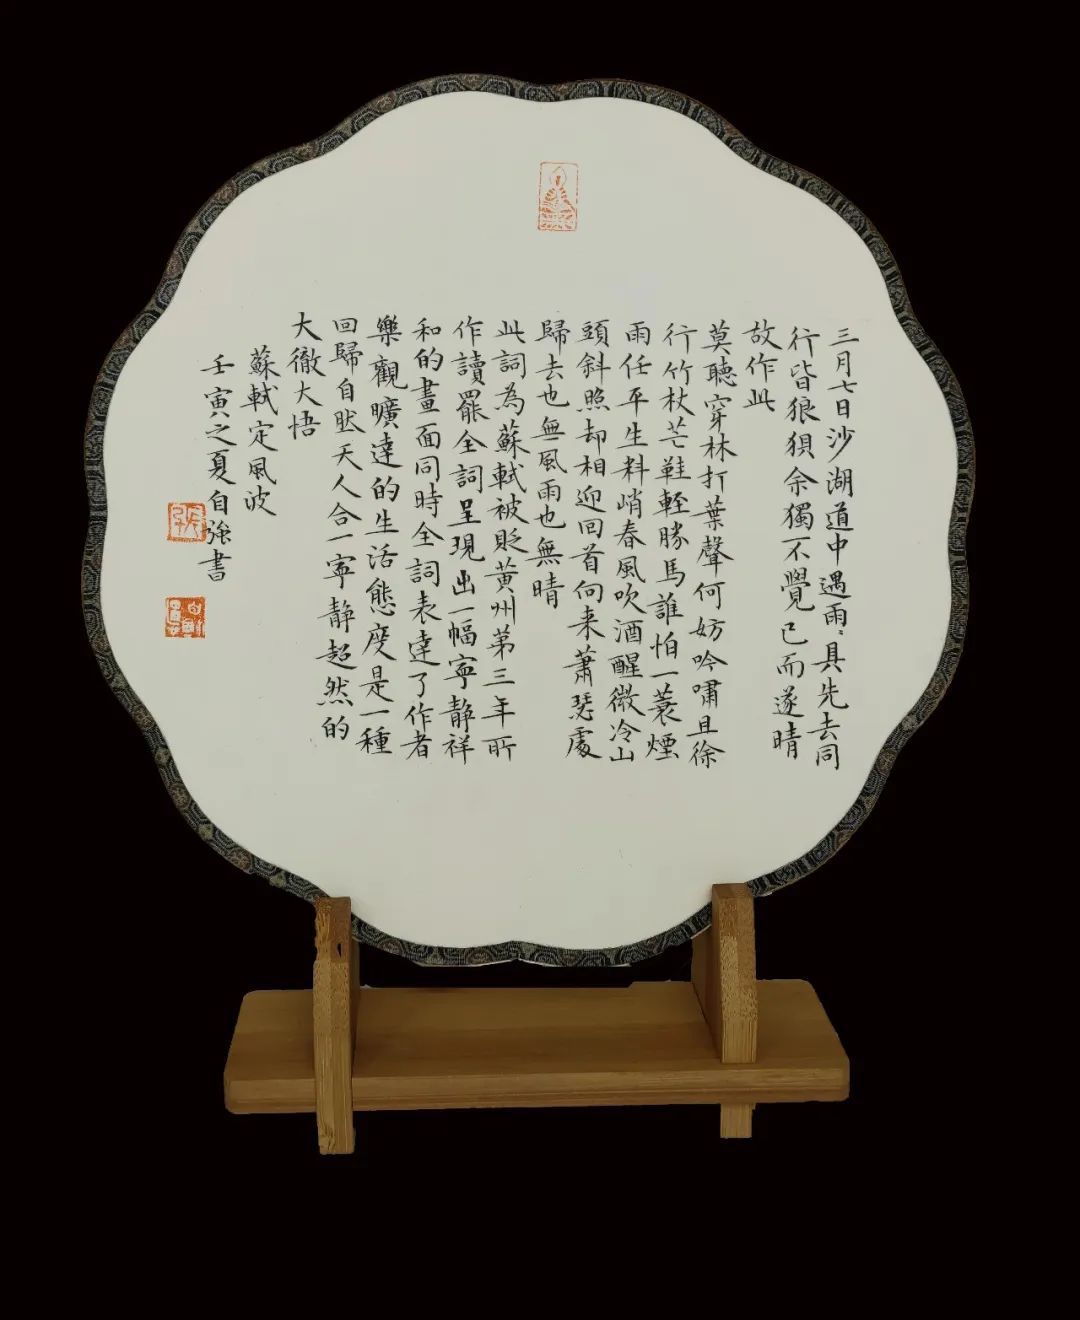 三月七日沙湖道中遇雨雨具先去同
行皆狼狽余獨不覺已而遂晴
故作此
莫聽穿林打葉聲何妨吟嘯且徐
行竹杖芒鞋輕勝馬誰怕一蓑煙
雨任平生料峭春風吹酒醒微冷山
頭斜照却相迎回首向来蕭瑟處
歸去也無風雨也無晴
此詞為蘇軾被貶黄州第三年所
作讀罷全詞呈現出一幅寧静祥
和的畫面同時全詞表達了作者
樂觀曠達的生活態度是一種
回歸自然天人合一寧静超然的
大徹大悟
蘇軾定風波
壬寅之夏自強書
張